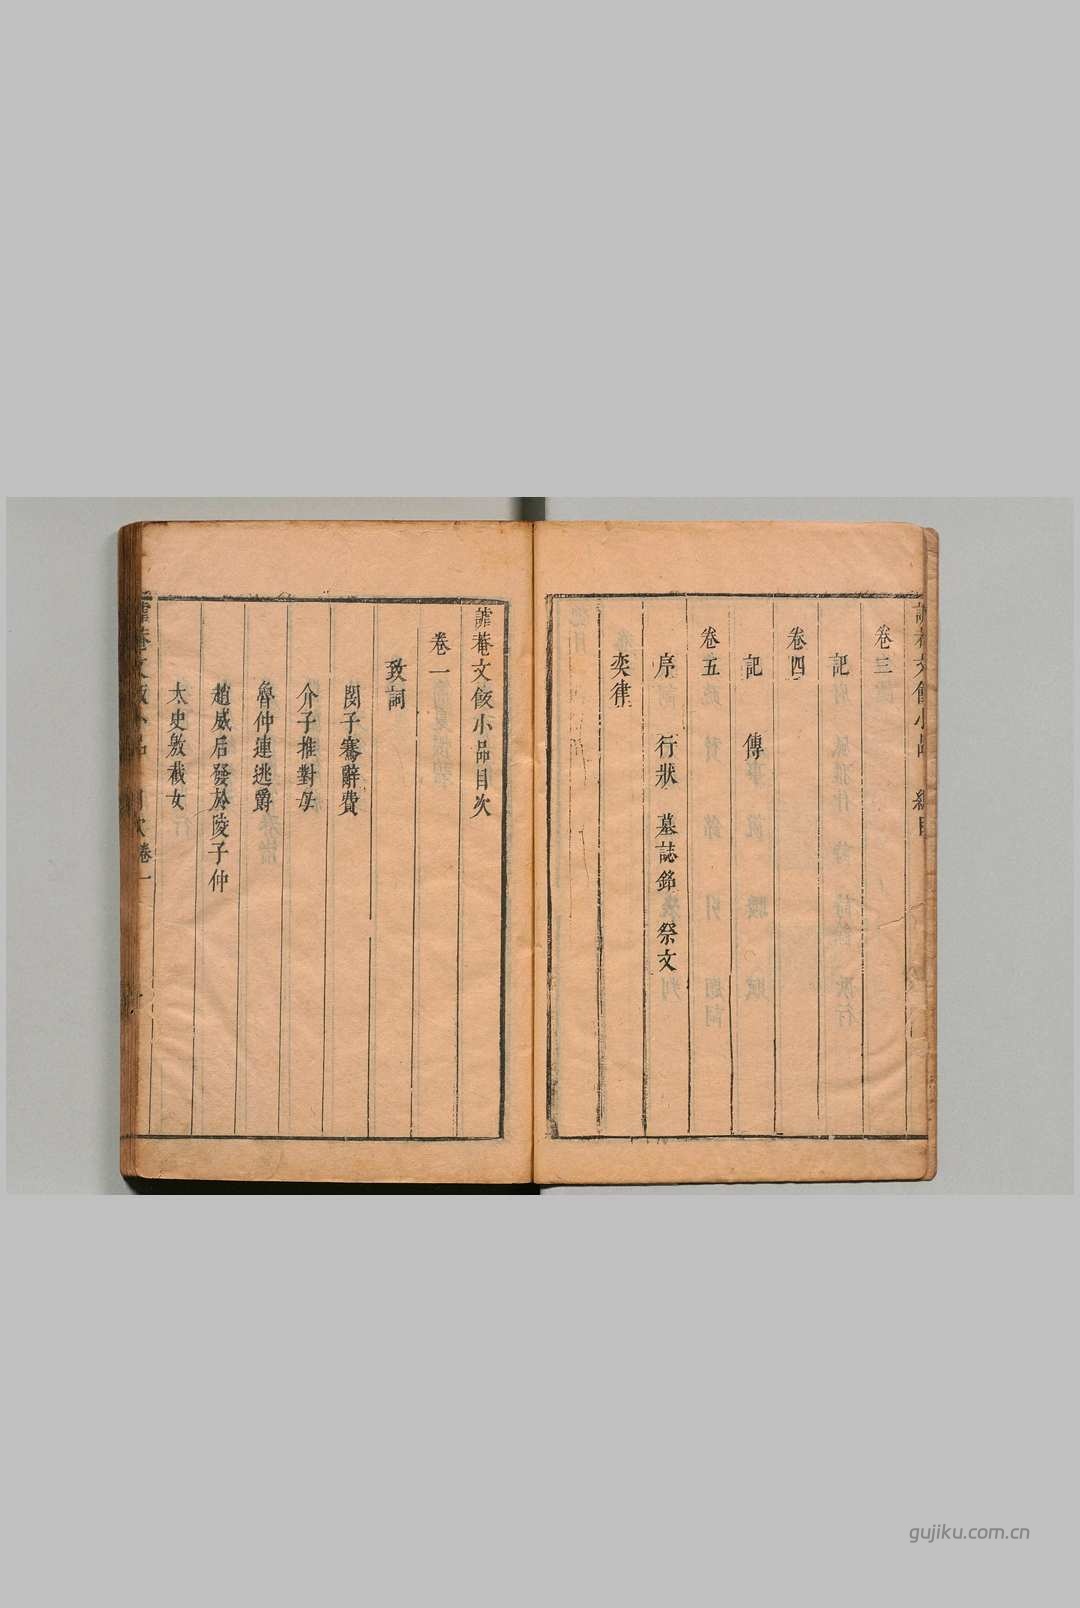 卷三
記
卷四
記 傳
卷五
序 行狀 墓誌銘 祭文
奕律
謔菴文飯小品目次
卷一
致詞
閔子騫辭費
介子推對母
魯仲連逃爵
趙威后發於陵子仲
太史敫截女
謔菴文飯小品 目次卷一
gujiku.com.cn